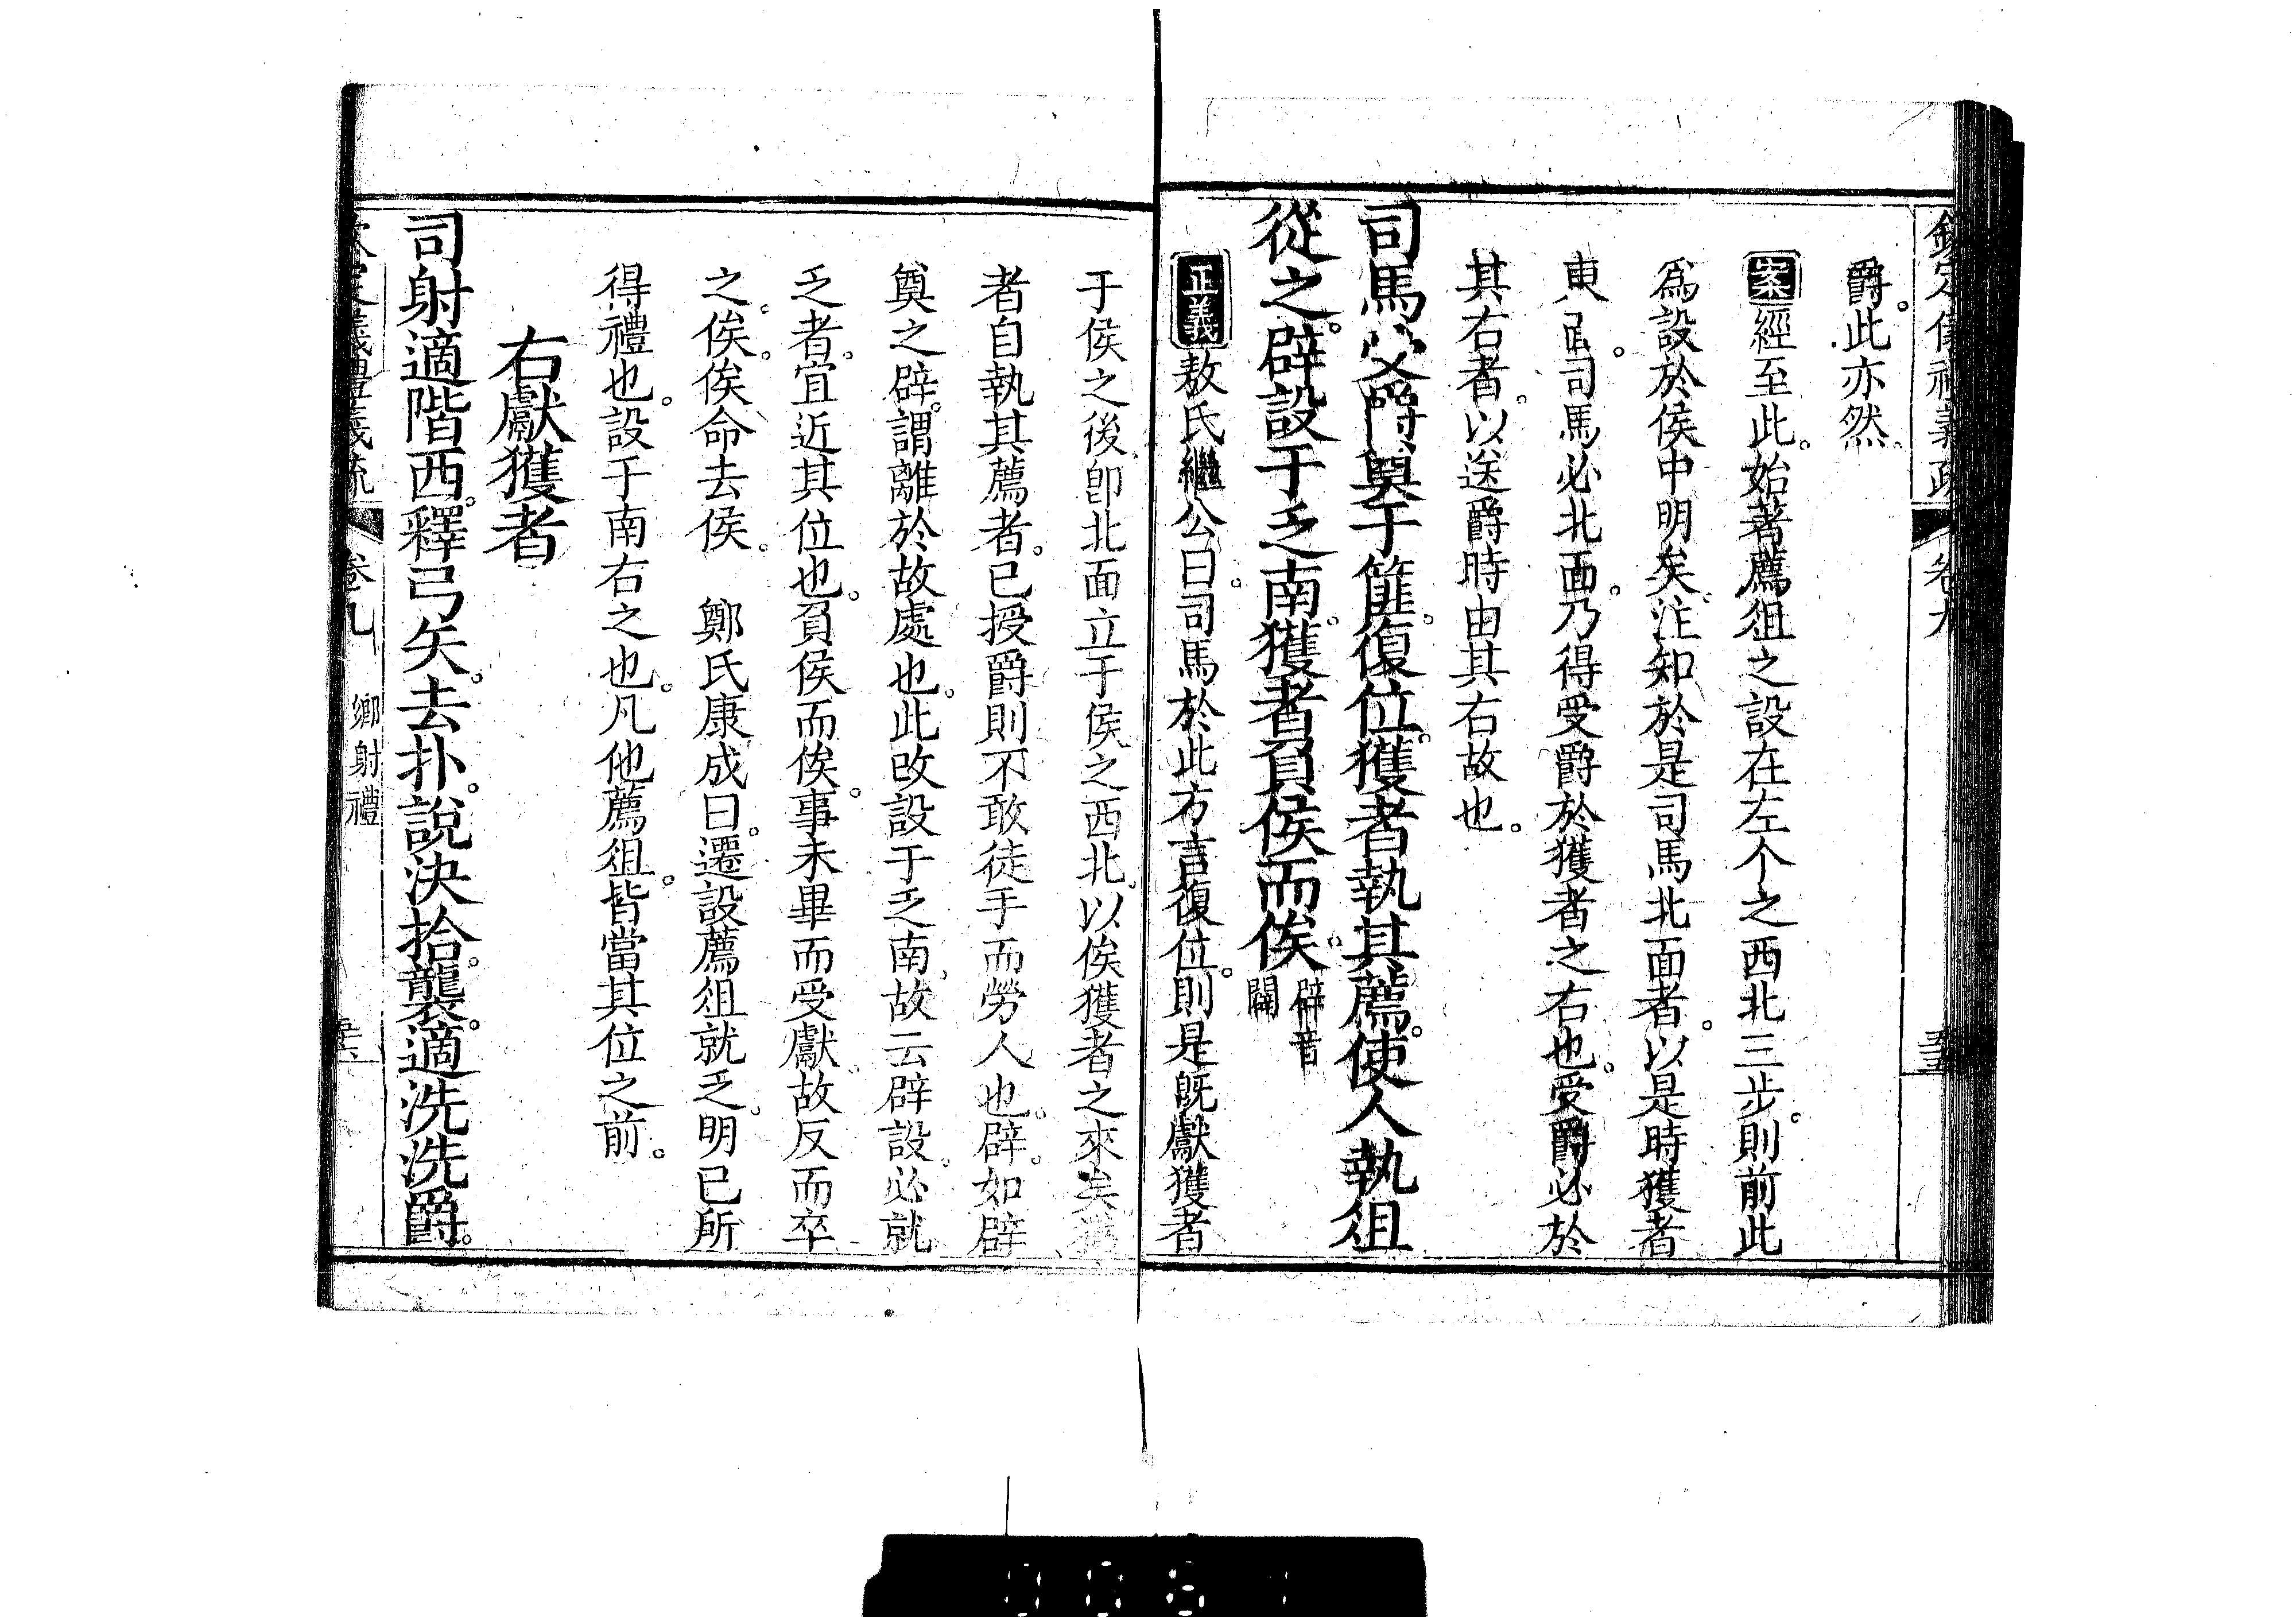 欽定儀禮義疏 卷九
爵。此亦然。
案經至此。始著薦俎之設在左个之西北三步。則前此
為設於侯中明矣。注知於是司馬北面者。以是時獲者
東面。司馬必北面。乃得受爵於獲者之右也。受爵必於
其右者。以送爵時由其右故也。
司馬受爵奠于篚。復位。獲者執其薦。使人執俎
從之。辟設于乏南。獲者負侯而俟。辟音
闢
正義敖氏繼公曰。司馬於此方言復位。則是既獻獲者
于侯之後。卽北面立于侯之西北。以俟獲者之來矣。獲
者自執其薦者。已授爵則不敢徒手而勞人也。辟。如辟
奠之辟。謂離於故處也。此改設于乏南。故云辟設。必就
乏者。宜近其位也。負侯而俟。事未畢而受獻。故反而卒
之。俟。俟命去侯。 鄭氏康成曰。遷設薦俎就乏。明已所
得禮也。設于南右之也。凡他薦俎。皆當其位之前。
右獻獲者
司射適階西。釋弓矢。去扑。說決拾。襲。適洗洗爵。
欽定儀禮義疏 卷九 鄉射禮